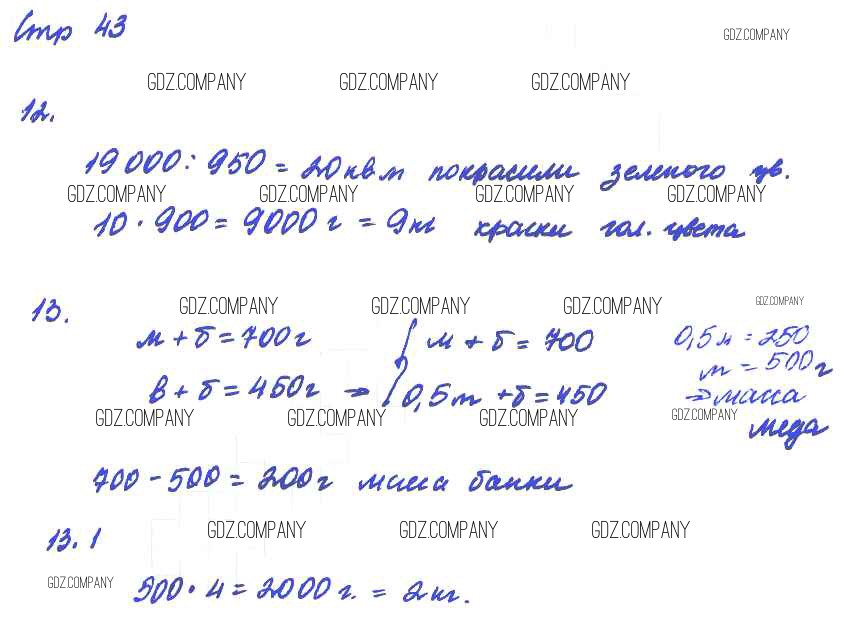 Стр 43
GDZ.COMPANY
GDZ.COMPANY GDZ.COMPANY GDZ.COMPANY
12.
19 000 : 950 = 20 кв м покрасили зеленого цв.
GDZ.COMPANY GDZ.COMPANY GDZ.COMPANY GDZ.COMPANY
10 · 900 = 9000 г = 9 кг краски гол. цвета
13.
GDZ.COMPANY GDZ.COMPANY GDZ.COMPANY GDZ.COMPANY
м + б = 700 г { м + б = 700 0,5 м = 250
м = 500 г
в + б = 450 г → { 0,5 м + б = 450 → масса
GDZ.COMPANY GDZ.COMPANY GDZ.COMPANY GDZ.COMPANY
меда
700 - 500 = 200 г масса банки
13.1
GDZ.COMPANY GDZ.COMPANY GDZ.COMPANY
GDZ.COMPANY
500 · 4 = 2000 г. = 2 кг.